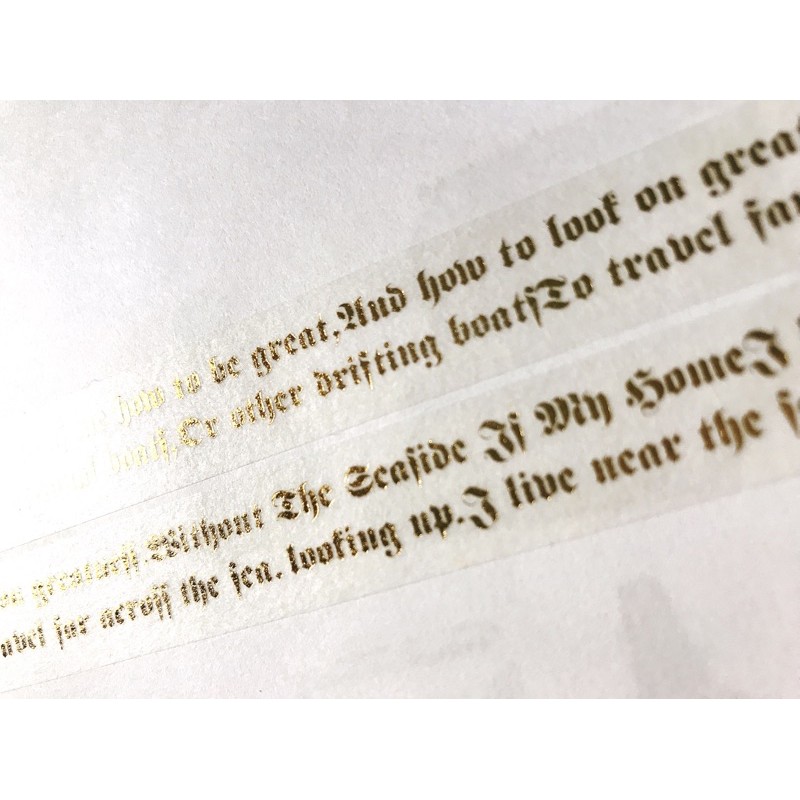 how to be great,And how to look on great
boatſ,Or other drifting boatſTo travel far
on greatneſſ.Without The Seaſide Iſ My HomeI
travel far acroſſ the ſea. looking up.I live near the ſ